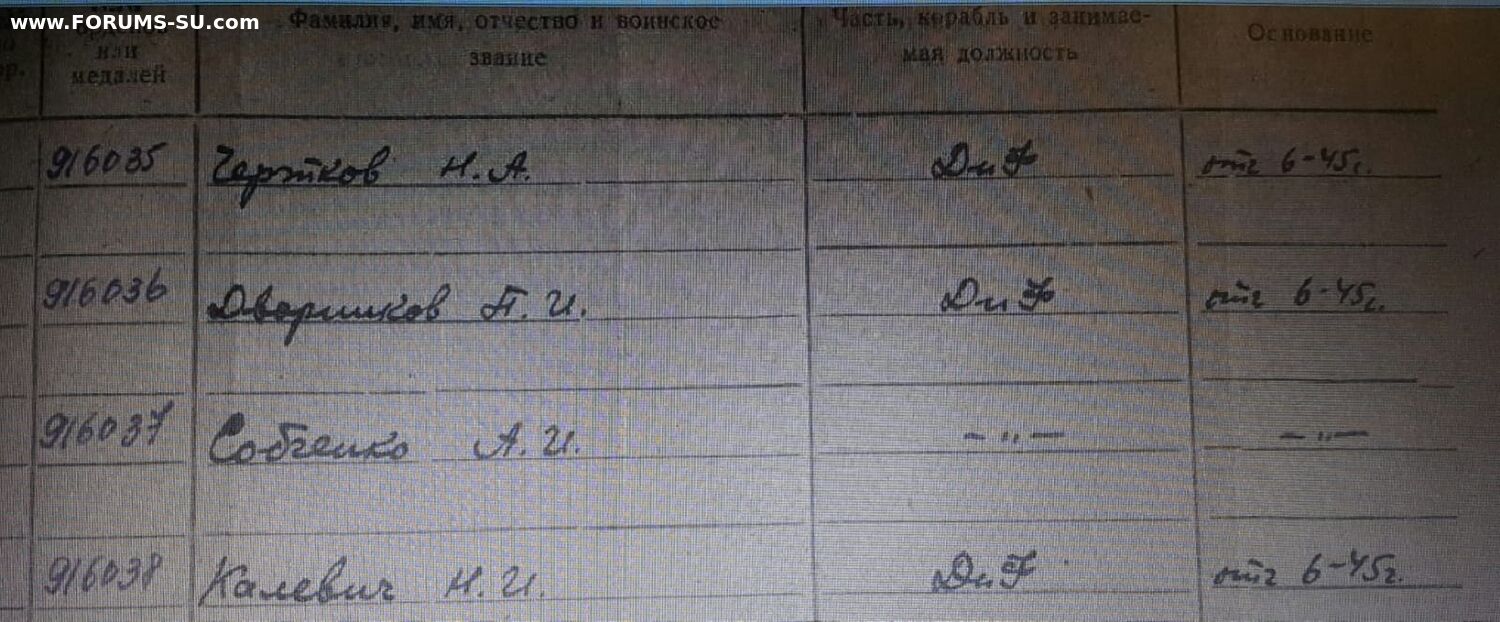 www.FORUMS-SU.com
или
медалей
Фамилия, имя, отчество и воинское
звание
Часть, корабль и занимае-
мая должность
Основание
916035 Чертков Н. А. ДиФ отг 6-45г.
916036 Дворников П. И. ДиФ отг 6-45г.
916037 Собченко А. И. - " - - " -
916038 Калевич Н. И. ДиФ отг 6-45г.